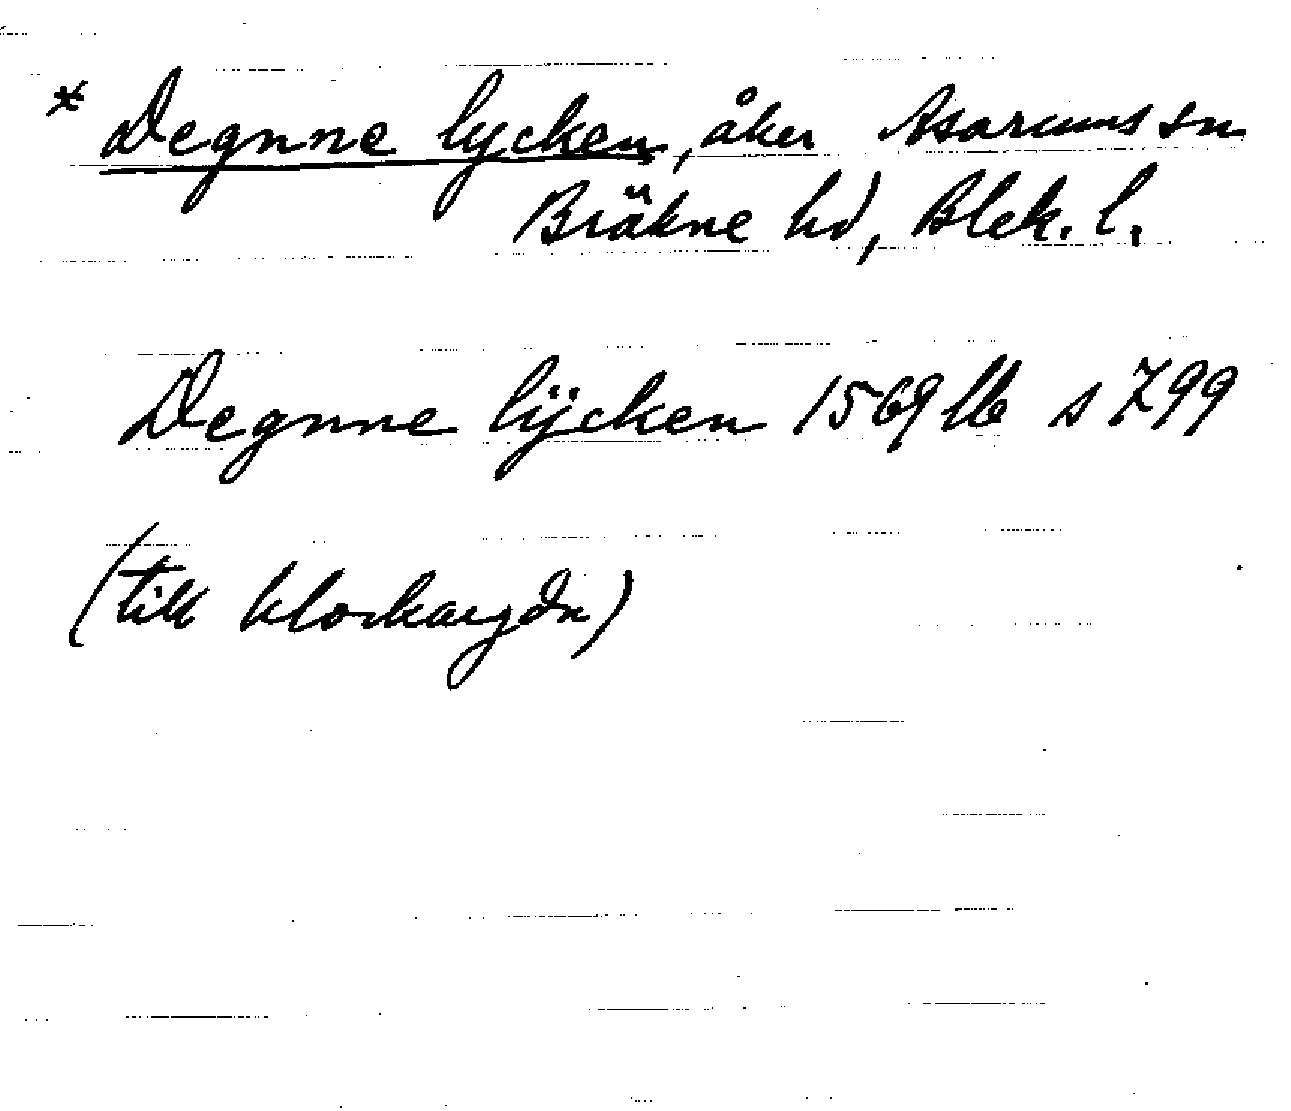 * Degnne lycken, åker Asarums sn
Bräkne hd, Blek. l.
Degnne lÿcken 1569 lb s 799
(till klockargdn)